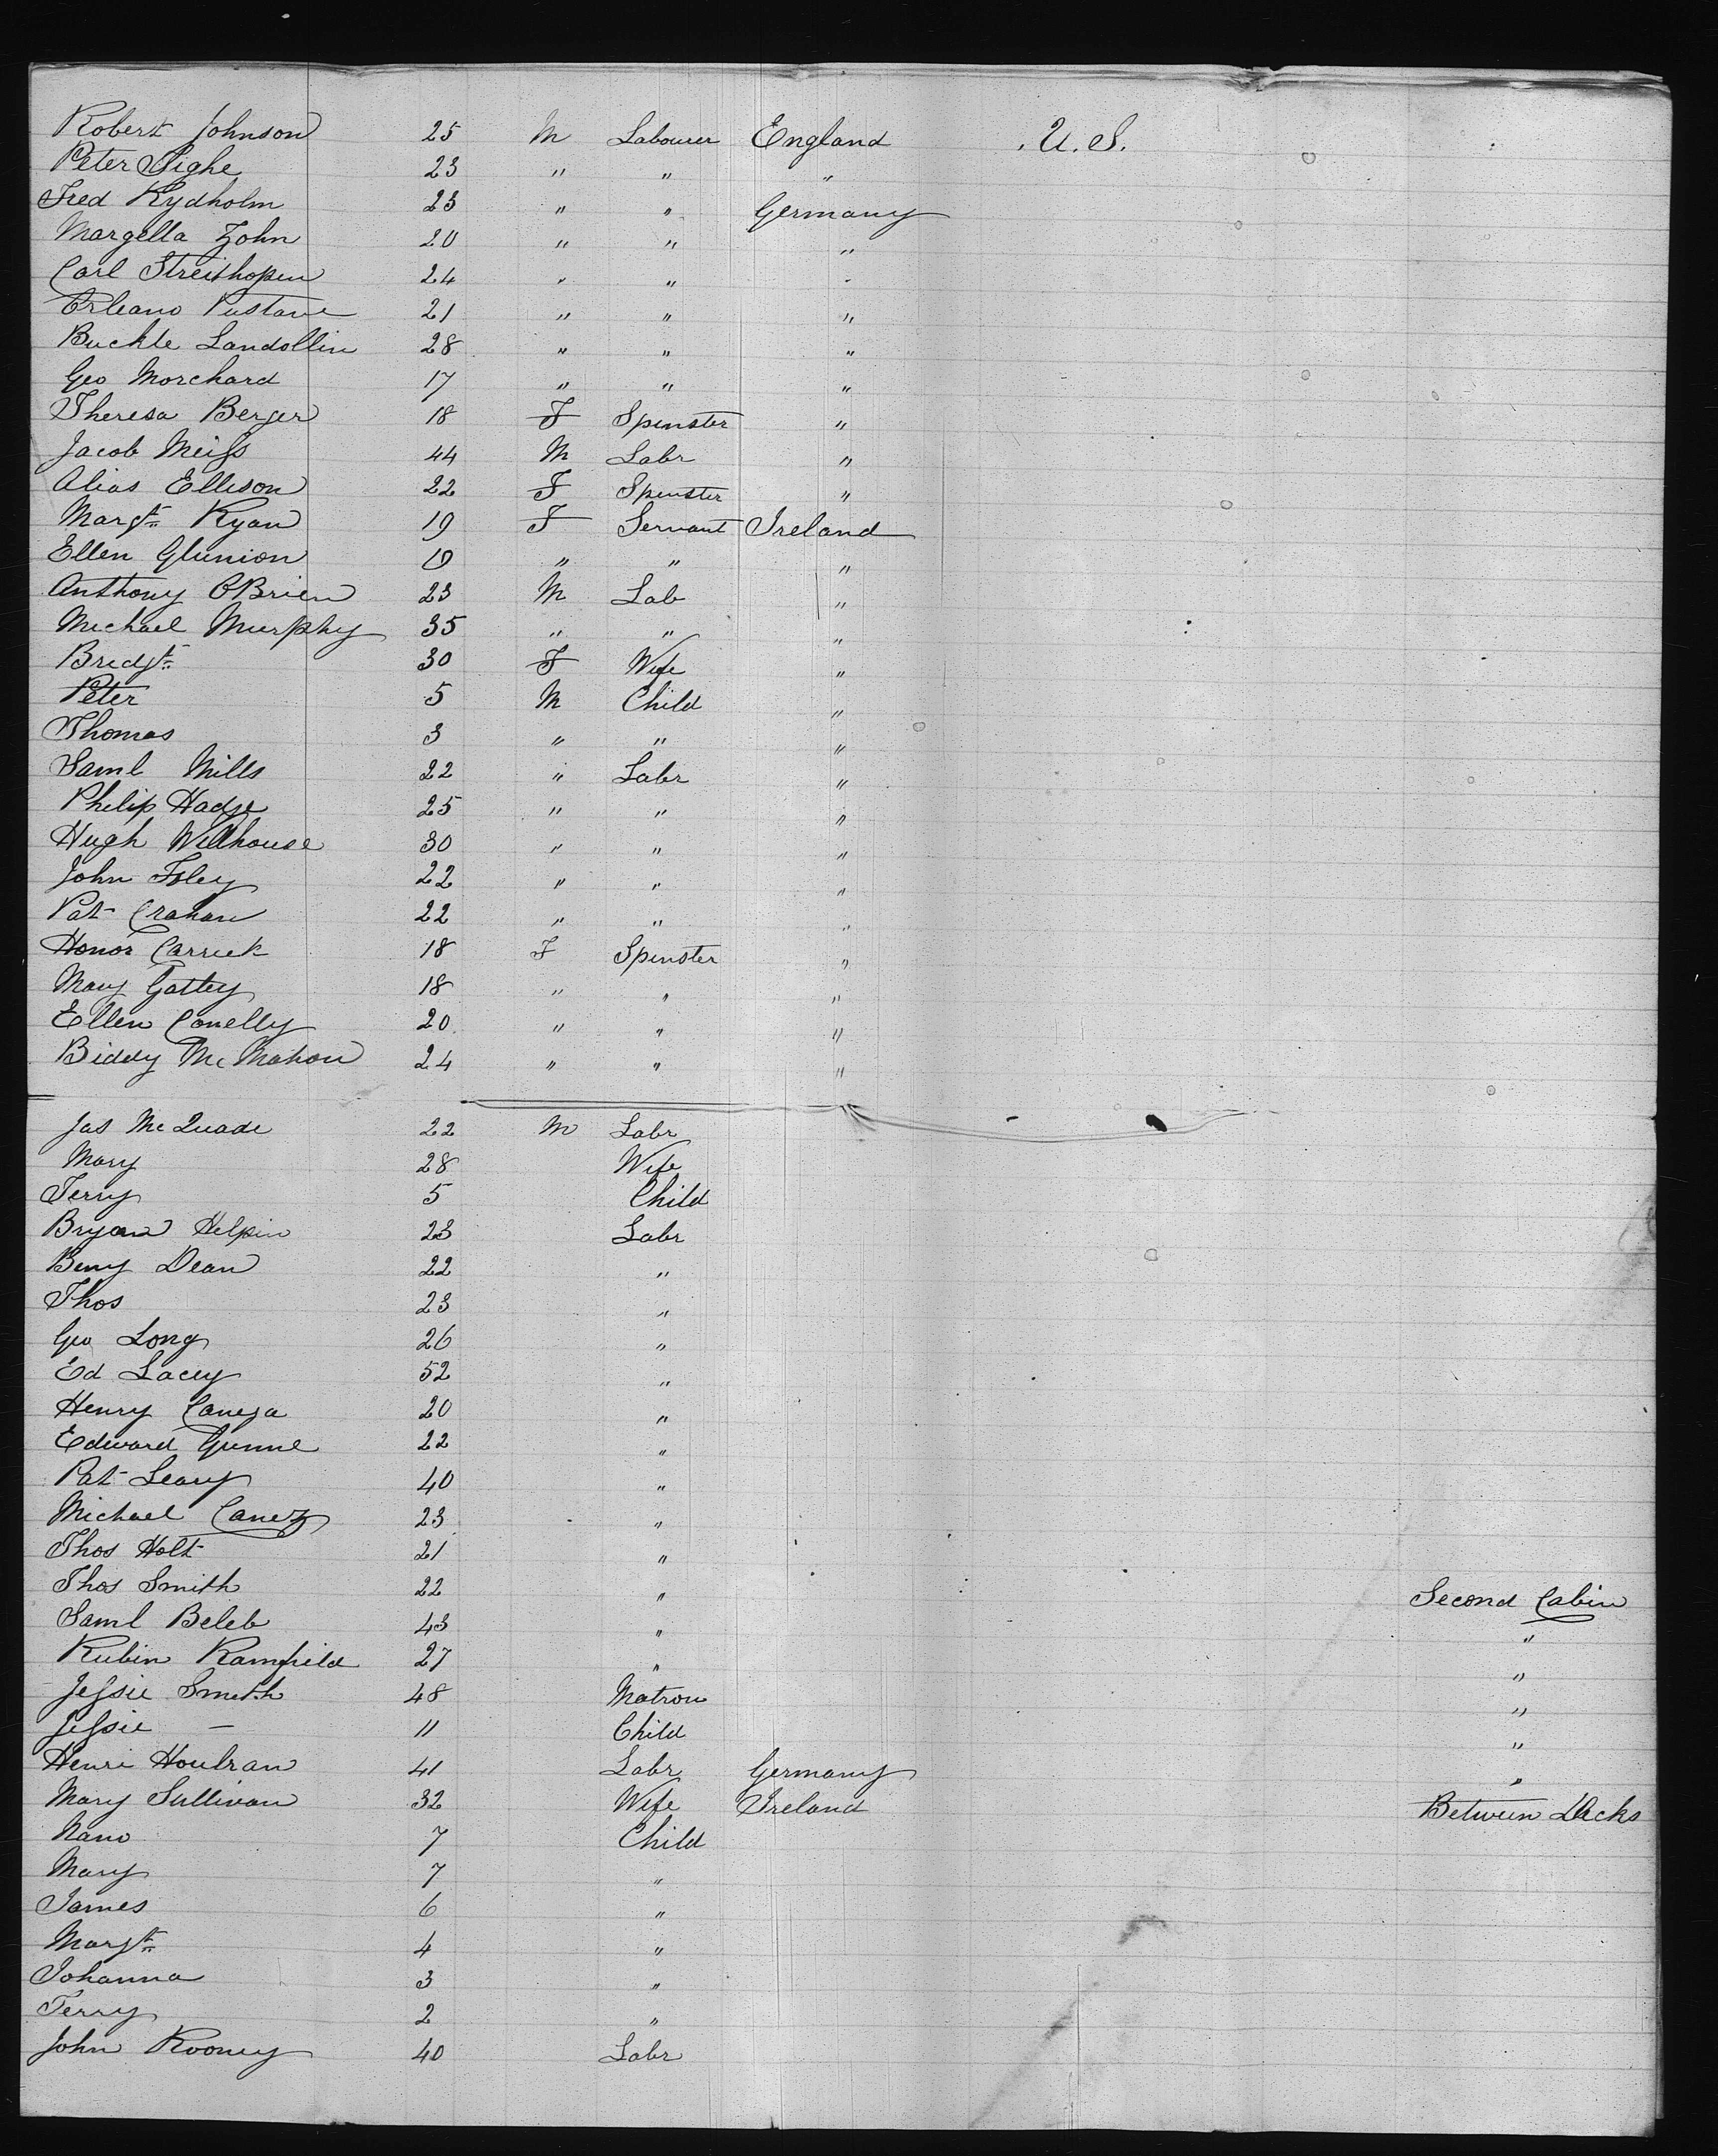 Robert Johnson 25 M Labourer England U.S.
Peter Sighe 23 " " "
Fred Rydholm 23 " " Germany
Margella Zohn 20 " " "
Carl Streithopen 24 " " "
Orleano Pustave 21 " " "
Buckle Landollin 28 " " "
Geo Morchard 17 " " "
Theresa Berger 18 F Spinster "
Jacob Meiss 44 M Labr "
Alias Ellison 22 F Spinster "
Margt Ryan 19 F Servant Ireland
Ellen Glunion 19 " " "
Anthony OBrien 23 M Lab "
Michael Murphy 35 " " "
Bridgt 30 F Wife "
Peter 5 M Child "
Thomas 3 " " "
Saml Mills 22 " Labr "
Philip Hadge 25 " " "
Hugh Willhouse 30 " " "
John Foley 22 " " "
Pat Crahan 22 " " "
Honor Carrick 18 F Spinster "
Mary Gattey 18 " " "
Ellen Conelly 20 " " "
Biddy McMahon 24 " " "
Jas McQuade 22 M Labr
Mary 28 Wife
Terry 5 Child
Bryan Helpin 23 Labr
Beny Dean 22 "
Thos 23 "
Geo Long 26 "
Ed Lacey 52 "
Henry Canega 20 "
Edward Gunne 22 "
Pat Leary 40 "
Michael Canez 23 "
Thos Holt 21 "
Thos Smith 22 " Second Cabin
Saml Beleb 43 " "
Rubin Ramfield 27 " "
Jessie Smith 48 Matron "
Jessie — 11 Child "
Henri Houlran 41 Labr Germany "
Mary Sullivan 32 Wife Ireland Between Decks
Nano 7 Child
Mary 7 "
James 6 "
Margt 4 "
Johanna 3 "
Terry 2 "
John Rooney 40 Labr